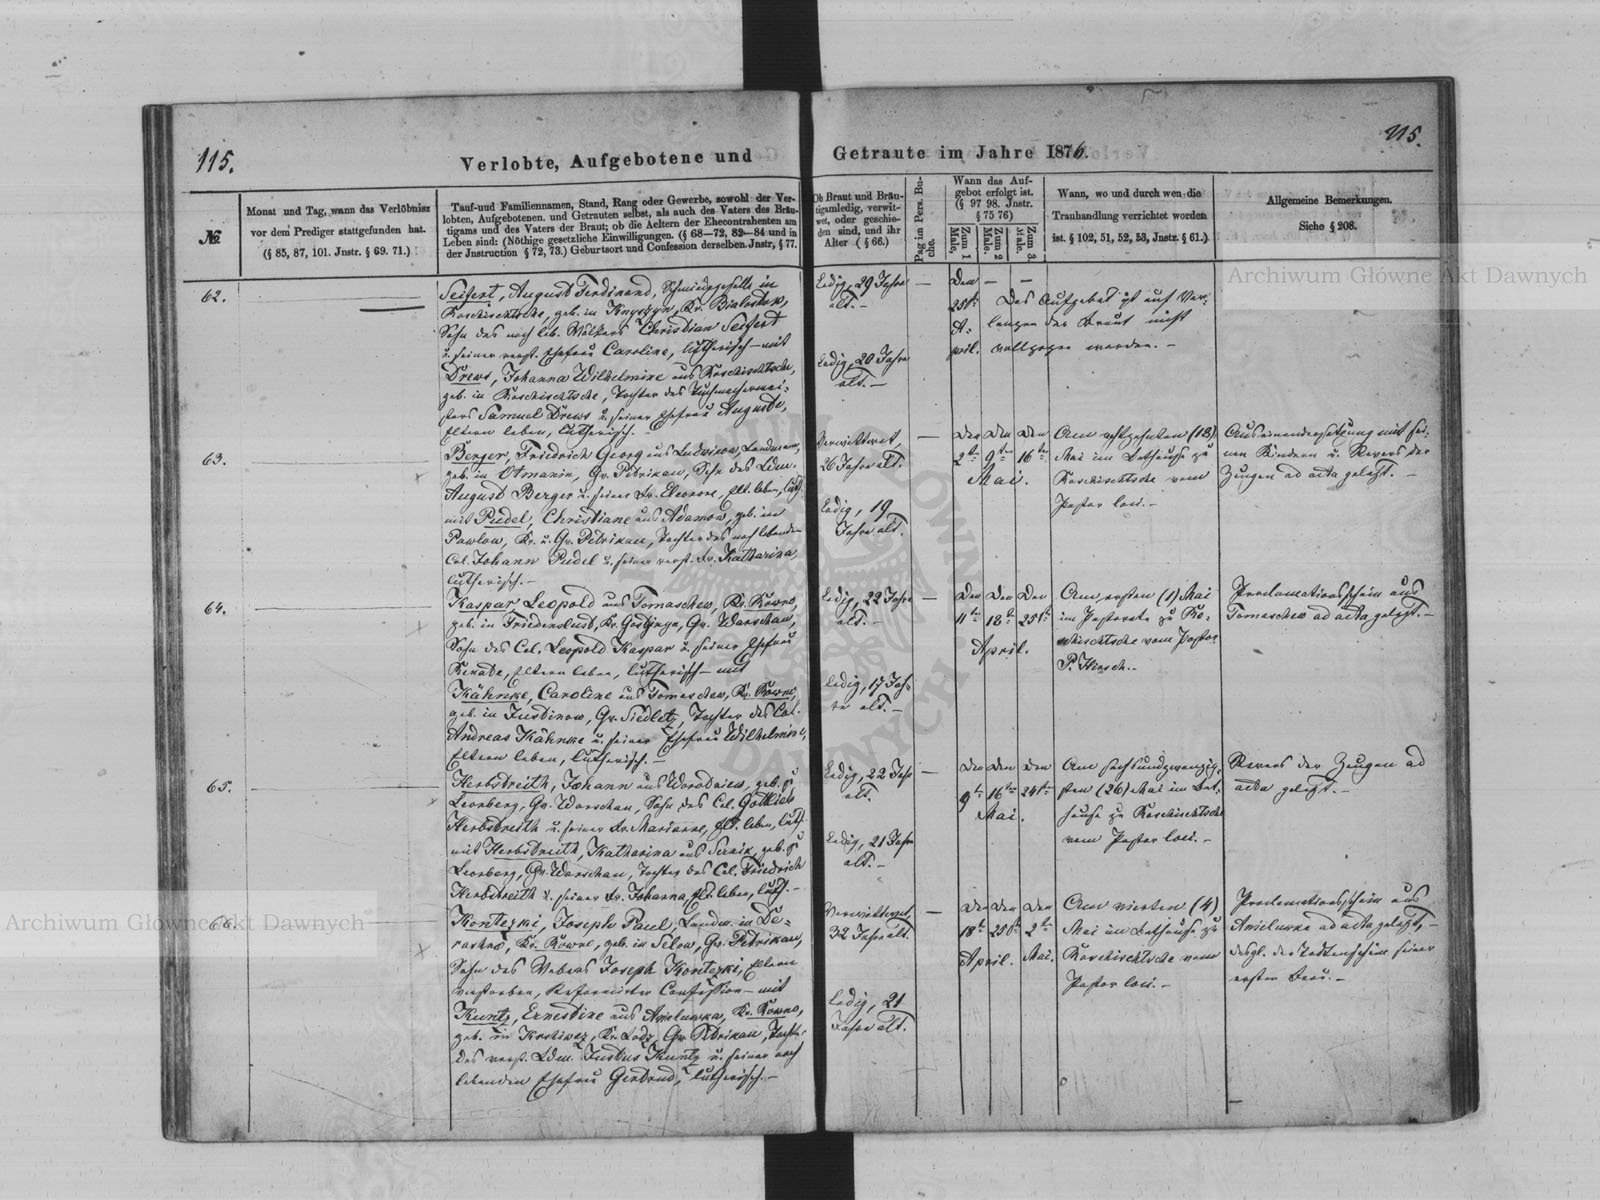 115.
Verlobte, Aufgebotene und
Getraute im Jahre 1876.
115.
№
Monat und Tag, wann das Verlöbnisz
vor dem Prediger stattgefunden hat.
(§ 85, 87, 101. Jnstr. § 69. 71.)
Tauf-uud Familiennamen, Stand, Rang oder Gewerbe, sowohl der Ver-
lobten, Aufgebotenen. und Getrauten selbst, als auch des Vaters des Bräu-
tigams und des Vaters der Braut; ob die Aeltern der Ehecontrahenten am
Leben sind: (Nöthige gesetzliche Einwilligungen. (§ 68—72, 82—84 und in
der Jnstruction § 72, 73.) Geburtsort und Confession derselben. Jnstr, § 77.
Ob Braut und Bräu-
tigam ledig, verwit-
wet, oder geschie-
den sind, und ihr
Alter ( § 66.)
Pag im Pers. Bu-
che.
Wann das Auf-
gebot erfolgt ist.
(§ 97 98. Jnstr.
§ 75 76)
Zum 1 Male,
Zum 2 Male.
Zum 3 Male.
Wann, wo und durch wen die
Trauhandlung verrichtet worden
ist. § 102, 51, 52, 53, Jnstz. § 61.)
Allgemeine Bemerkungen.
Siehe § 208.
62.
Seifert, August Ferdinand, Schmiedegeselle in
Roschischtsche, geb. in Knyszyn, Kr. Bialostok,
Sohn des noch leb. Christian Seifert
u. seiner verst. Ehefrau Caroline, lutherisch – mit
Drews, Johanna Wilhelmine aus Roschischtsche,
geb. in Roschischtsche, Tochter des Tuchmachermei-
sters Samuel Drews u. seiner Ehefrau Auguste,
Eltern leben, lutherisch. –
Ledig, 29 Jahre
alt. –
Ledig, 20 Jahre
alt. –
–
Den – –
25ten
A-
pril.
Das Aufgebot ist auf Ver-
langen der Braut nicht
vollzogen worden. –
63.
Berger, Friedrich Georg aus Ludwikow, Landmann,
geb. in Otmanin, Gv. Petrikau, Sohn des Ldm.
August Berger u. seiner Fr. Eleonore, Elt. leben, luth.
mit Pudel, Christiane aus Adamow, geb. in
Pawlow, Kr. u. Gv. Petrikau, Tochter des noch lebenden
Col. Johann Pudel u. seiner verst. Fr. Katharina,
lutherisch. –
Verwittwet,
26 Jahre alt.
Ledig, 19
Jahre alt.
–
Den Den Den
2ten 9ten 16ten
Mai.
Am achtzehnten (18)
Mai im Bethause zu
Roschischtsche vom
Pastor loci. –
Auseinandersetzung mit sei-
nen Kindern u. Revers der
Zeugen ad acta gelegt. –
64.
Kaspar Leopold aus Tomaschew, Kr. Rowno,
geb. in Friedenslust, Kr. Gostynyn, Gv. Warschau,
Sohn des Col. Leopold Kaspar u. seiner Ehefrau
Renate, Eltern leben, lutherisch – mit
Kähnke, Caroline aus Tomaschew, Kr. Rowno,
geb. in Justinow, Gv. Siedletz, Tochter des Col.
Andreas Kähnke u. seiner Ehefrau Wilhelmine,
Eltern leben, lutherisch. –
Ledig, 22 Jahre
alt. –
Ledig, 17 Jah-
re alt. –
–
Den Den Den
11ten 18ten 25ten
April.
Am ersten (1) Mai
im Pastorate zu Ro-
schischtsche vom Pastor
P. Hirsch. –
Proclamationsschein aus
Tomaschew ad acta gelegt. –
65.
Herbstreith, Johann aus geb. zu
Leonberg, Gv. Warschau, Sohn des Col. Gottlieb
Herbstreith u. seiner Fr. Marianne, Elt. leben, luth.
mit Herbstreith, Katharina aus geb. zu
Leonberg, Gv. Warschau, Tochter des Col. Friedrich
Herbstreith u. seiner Fr. Johanna, Elt. leben, luth. –
Ledig, 22 Jahr
alt.
Ledig, 21 Jahre
alt. –
–
Den Den Den
9ten 16ten
Mai.
Am sechsundzwanzig-
sten (26) Mai im Bet-
hause zu Roschischtsche
vom Pastor loci. –
Revers der Zeugen ad
acta gelegt. –
66.
Joseph Paul, Landm. in
Kr. Rowno, geb. in Gv. Petrikau,
Sohn des Webers Joseph Eltern
verstorben, Reformirter Confession – mit
Kuntz, Ernestine aus Amelunka, Kr. Rowno,
geb. in Kr. Lodz, Gv. Petrikau, Tochter
des verst. Ldm. Justus Kuntz u. seiner noch
lebenden Ehefrau Gertrud, lutherisch. –
Verwittwet,
32 Jahre alt.
Ledig, 21
Jahre alt.
–
Den Den Den
18ten 25ten 2ten
April. Mai.
Am vierten (4)
Mai im Bethause zu
Roschischtsche vom
Pastor loci. –
Proclamationsschein aus
Amelunka ad acta gelegt, –
desgl. der Todtenschein seiner
ersten Frau. –
Archiwum Główne Akt Dawnych
Archiwum Główne Akt Dawnych